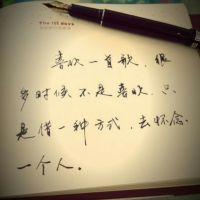 The 100 Days
喜欢一首歌，很
多时候不是喜欢，只
是借一种方式，去怀念
一个人。